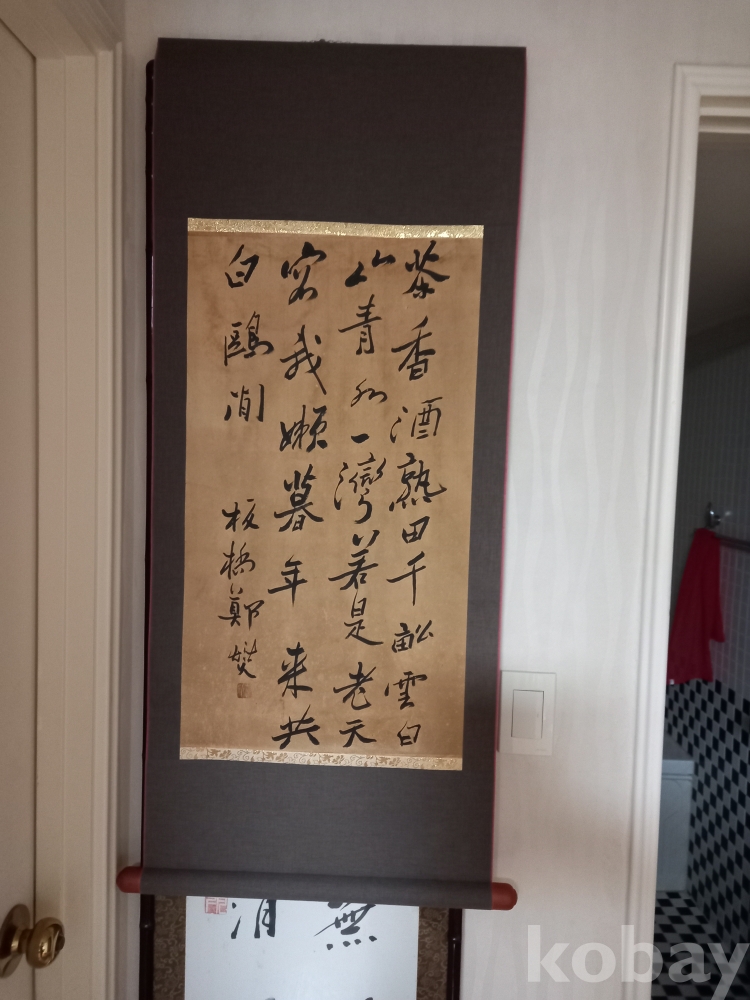 茶香酒熟田千畝雲白
山青水一灣若是老天
容我懶暮年來共
白鷗閒
板橋鄭燮
無
kobay